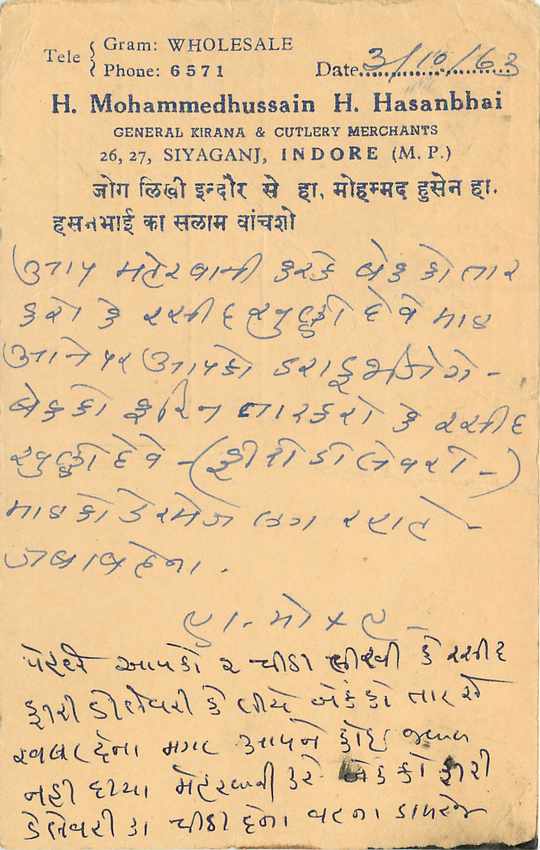 Tele { Gram: WHOLESALE
Phone: 6571 Date 3/10/63
H. Mohammedhussain H. Hasanbhai
GENERAL KIRANA & CUTLERY MERCHANTS
26, 27, SIYAGANJ, INDORE (M. P.)
जोग लिखी इन्दौर से हा. मोहम्मद हुसेन हा.
हसनभाई का सलाम वांचशो
આપ મહેરબાની કરકે બેંક કો તાર
કરો કે રસીદ દેવે માલ
આને પર આપકો
બેંક કો તાર કરો કે રસીદ
દેવે - (ફ્રી ડીલેવરી -)
માલ કો ડેમેજ લગ રહા હે -
જવાબ દેના .
હા. મો × હ -
આપકો ૨ ચીઠી લીખી કે રસીદ
ફ્રી ડીલેવરી કે લીયે બેંક કો તાર સે
દેના મગર આપને કોઇ જવાબ
નહી દીયા મેહરબાની કરે બેંક કો ફ્રી
ડેલેવરી કા ચીઠી દેના વરના ડામરેજ